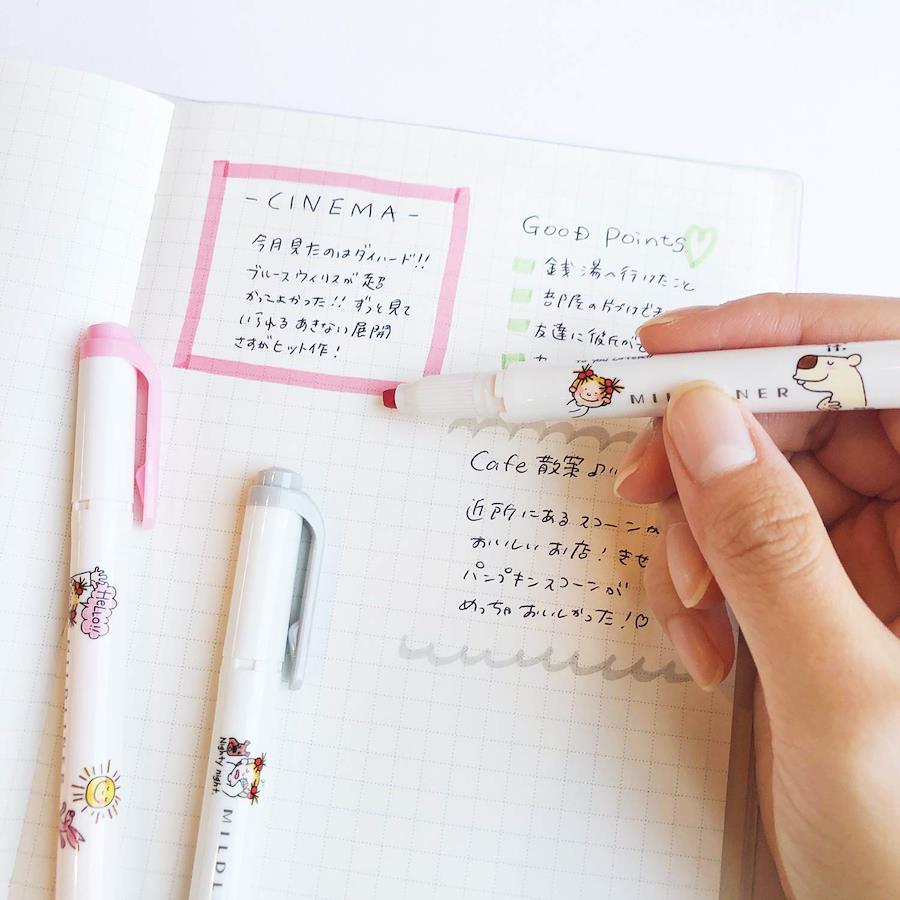 - CINEMA -
今月見たのはダイハード!!
ブルースウィリスが超
かっこよかった!! ずっと見て
いられるあきない展開
さすがヒット作!
GOOD Points
銭湯へ行けたこと
部屋の片づけでき
友達に彼氏がで
MILDLINER
Cafe 散策
近所にあるスコーンが
おいしいお店! きせ
パンプキンスコーンが
めっちゃおいしかった!♡
HELLO!!
MILDLINER
Nighty night
MILDL